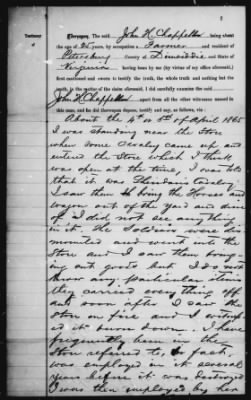 3
Testimony
of
Thereupon, The said John H Chappell being about
the age of years, by occupation a Farmer and resident of
Petersburg County of Dinwiddie and State of
Virginia having been by me (by virtue of my office aforesaid,)
first cautioned and sworn to testify the truth, the whole truth and nothing but the
truth, in the matter of the claim aforesaid, I did carefully examine the said
John H Chappell apart from all the other witnesses named in
this case, and he did thereupon depose, testify and say, as follows, viz:
About the 4th or 5th of April 1865
I was standing near the Store
when some Cavalry came up and
entered the Store which I think
was open at the time, I was told
that it was Cavalry
I saw them bring the Horse and
wagon out of the yard and
I did not see any thing
in it. The Soldiers were dis
mounted and went into the
Store and I saw them bring-
ing out goods but I do not
know any particular items
they carried everything off
and soon after I saw the
store on fire and I witness-
ed it burn down. I have
frequently been in the
Store referred to, in fact,
was employed in it several
years before it was destroyed
I was then employed by her